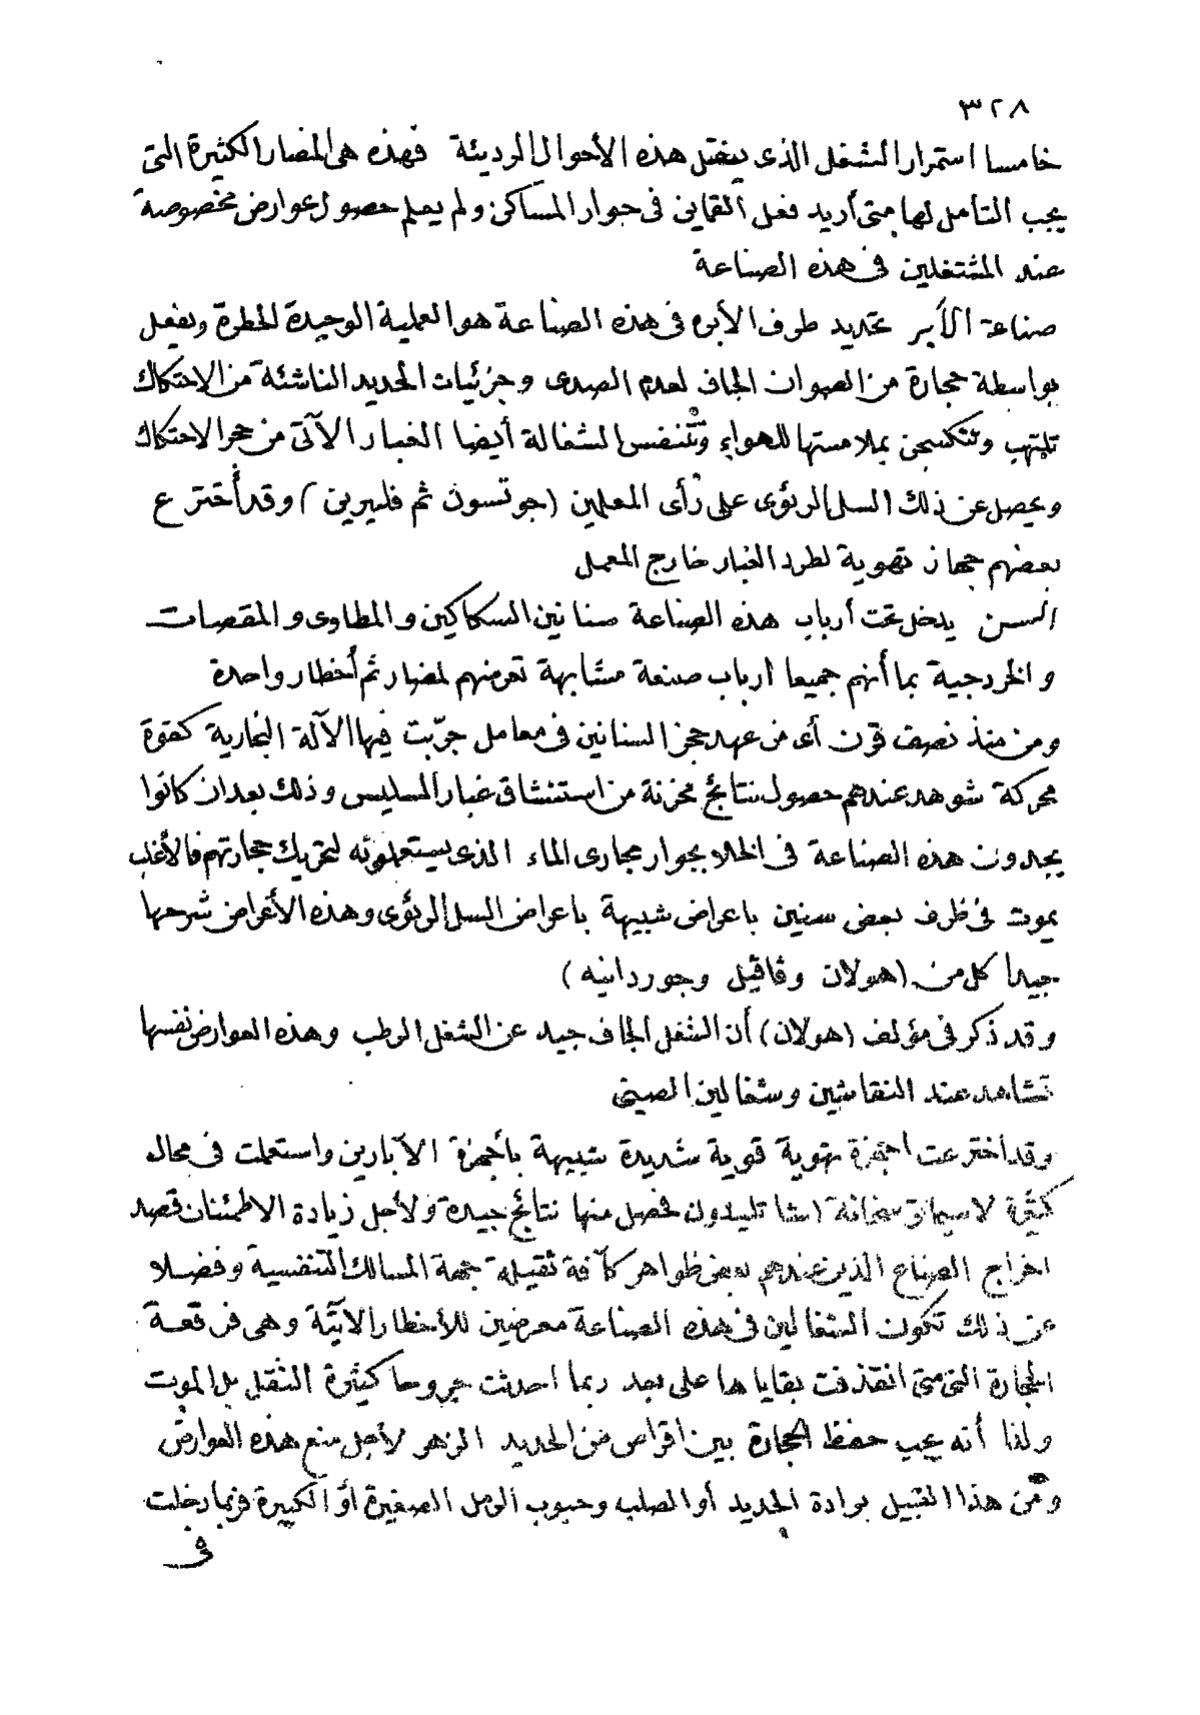 ٣٢٨
خامسا استمرار الشغل الذى يقتل هذه الأحوال الرديئة فهذه هى المضار الكثيرة التى
يجب التأمل لها متى أريد فعل القماين فى جوار المساكن ولم يعلم حصول عوارض مخصوصة
عند المشتغلين فى هذه الصناعة
صناعة الأبر تحديد طرف الأبره فى هذه الصناعة هو العملية الوحيدة الخطرة ويفعل
بواسطة حجارة من الصوان الجاف لعدم الصدى وجزئيات الحديد الناشئة من الاحتكاك
تلتهب وتتكسجن بملامستها للهواء وتتنفس الشغالة أيضا الغبار الآتى من حجر الاحتكاك
ويحصل عن ذلك السل الرئوى على رأى المعلمين (جوتسون ثم فليرين) وقد أخترع
بعضهم جهاز تهوية لطرد الغبار خارج المعمل
السن يدخل تحت أرباب هذه الصناعة سنانين السكاكين والمطاوى والمقصات
والخردجية بما أنهم جميعا ارباب صنعة مشابهة تعرضهم لمضار ثم أخطار واحدة
ومن منذ نصف قرن أى من عهد حجز السنانين فى معامل جرّبت فيها الآلة البخارية كقوة
محركة شوهد عندهم حصول نتائج محزنة من استنشاق غبار المسليس وذلك بعد ان كانوا
يجدون هذه الصناعة فى الخلا بجوار مجارى الماء الذى يستعملونه لتحريك حجارتهم فالأغلب
يموت فى ظرف بعض سنين باعراض شبيهة باعراض السل الرئوى وهذه الأعراض شرحها
جيدا كل من (هولان وڤاڤيل وجوردانيه)
وقد ذكر فى مؤلف (هولان) أن الشغل الجاف جيد عن الشغل الرطب وهذه العوارض نفسها
تشاهد عند النقاشين وشغالين الصينى
وقد اخترعت اجهزة تهوية قوية شديدة شبيهة بأجهزة الآبارين واستعملت فى محال
كثيرة لاسيما فى سنخانة اشاتليدون فحصل منها نتائج جيدة ولأجل زيادة الاطمئنان قصد
اخراج الصناع الذين عندهم بعض ظواهر كآفة ثقيلة جهة المسالك التنفسية وفضلا
عن ذلك تكون الشغالين فى هذه الصناعة معرضين للأخطار الآتية وهى فرقعة
الحجارة التى متى انقذفت بقاياها على بعد ربما احدثت جروحا كثيرة الثقل بل الموت
ولذا أنه يجب حفظ الحجارة بين اقراص من الحديد الزهر لأجل منع هذه العوارض
ومن هذا القبيل برادة الحديد أو الصلب وحبوب الرمل الصغيرة أو الكبيرة فربما دخلت
فى